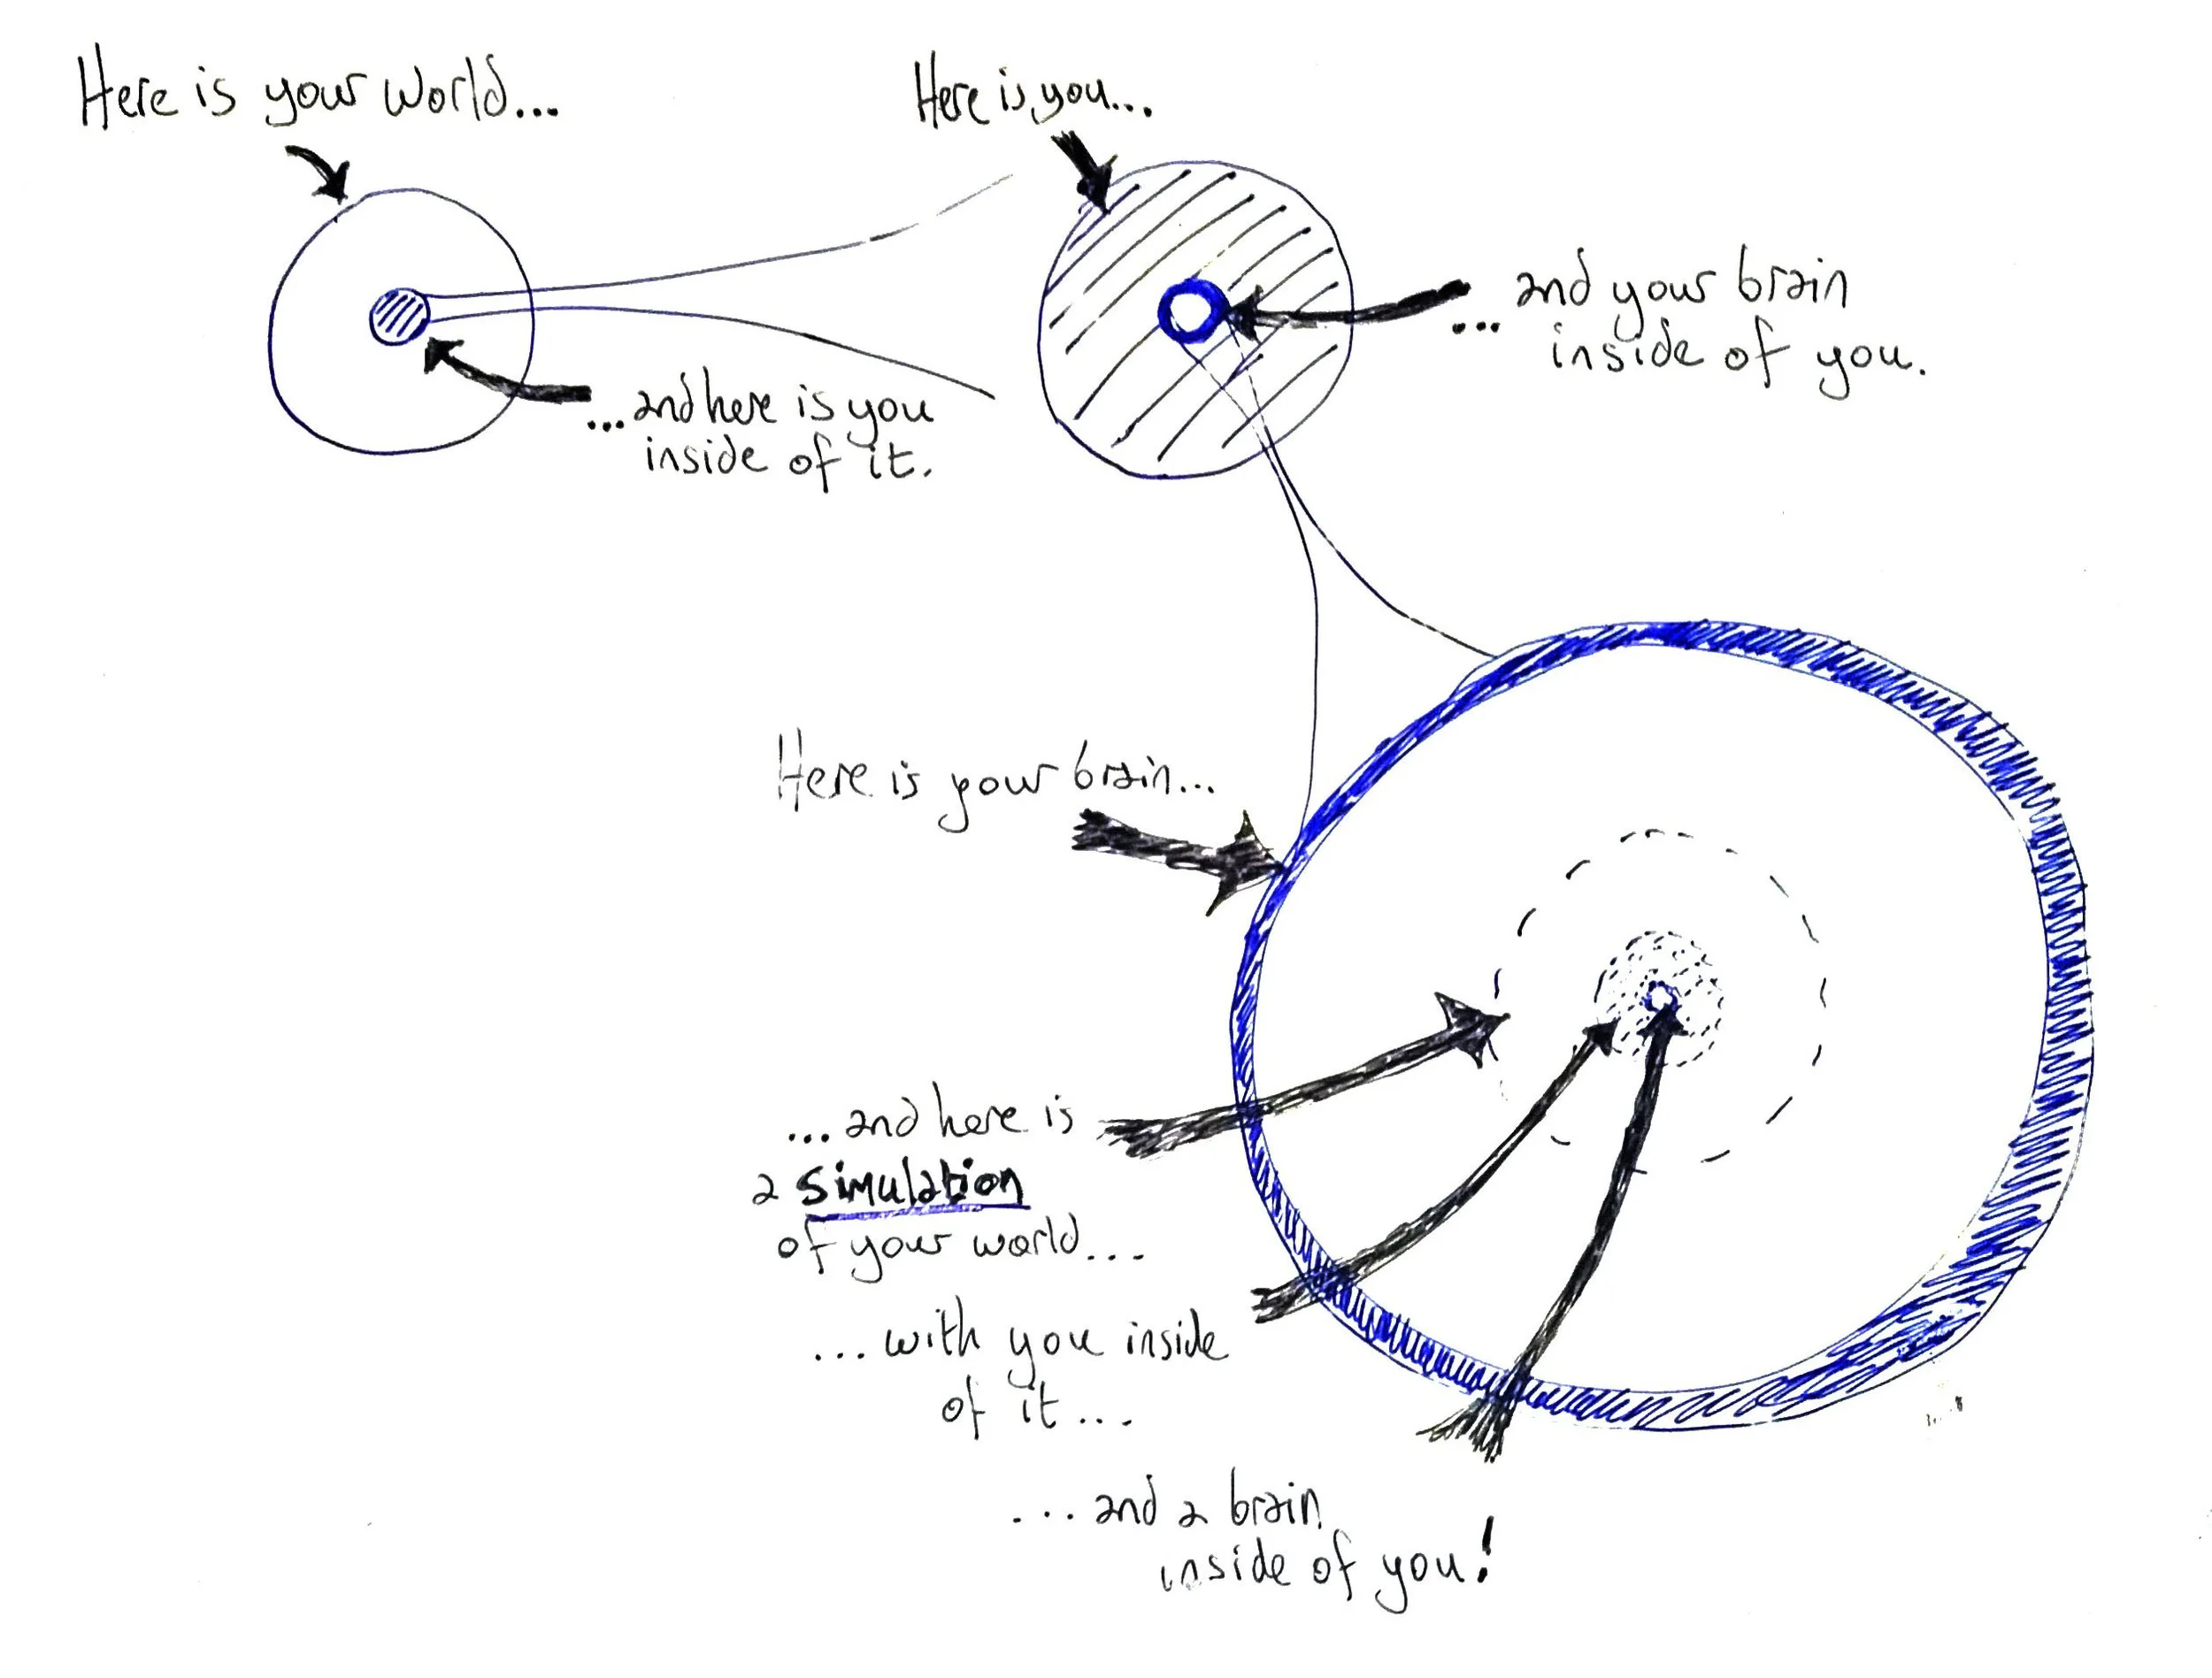 Here is your world...
...and here is you
inside of it.
Here is you...
... and your brain
inside of you.
Here is your brain...
...and here is
a simulation
of your world...
...with you inside
of it...
...and a brain
inside of you!